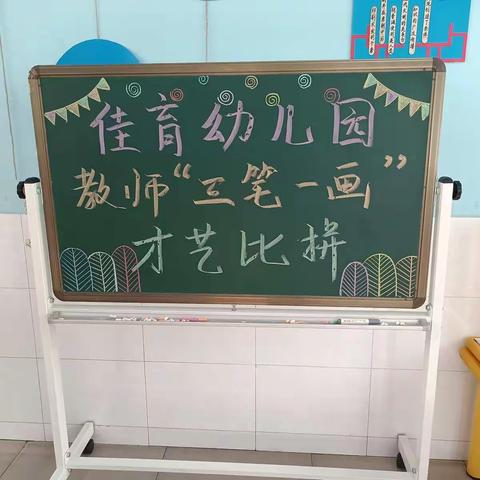 佳育幼儿园
教师“三笔一画”
才艺比拼